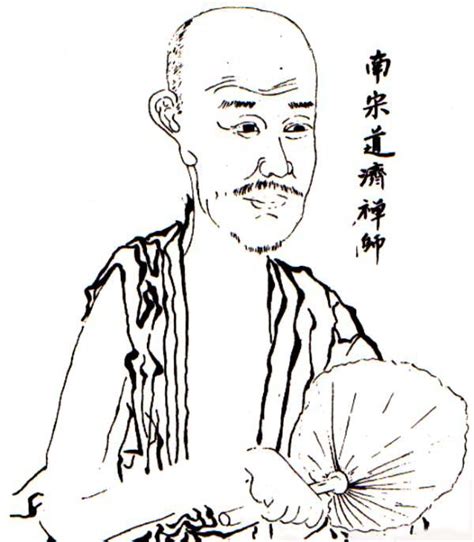 南宋道濟禅師